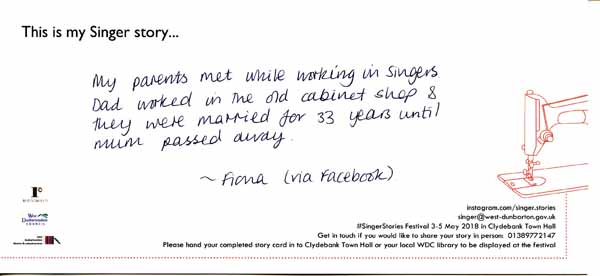 This is my Singer story...
My parents met while working in Singers
Dad worked in the old cabinet shop &
they were married for 33 years until
mum passed away.
~ Fiona (via Facebook)
instagram.com/singer.stories
singer@west-dunbarton.gov.uk
#SingerStories Festival 3-5 May 2018 in Clydebank Town Hall
Get in touch if you would like to share your story in person: 01389772147
Please hand your completed story card in to Clydebank Town Hall or your local WDC library to be displayed at the festival